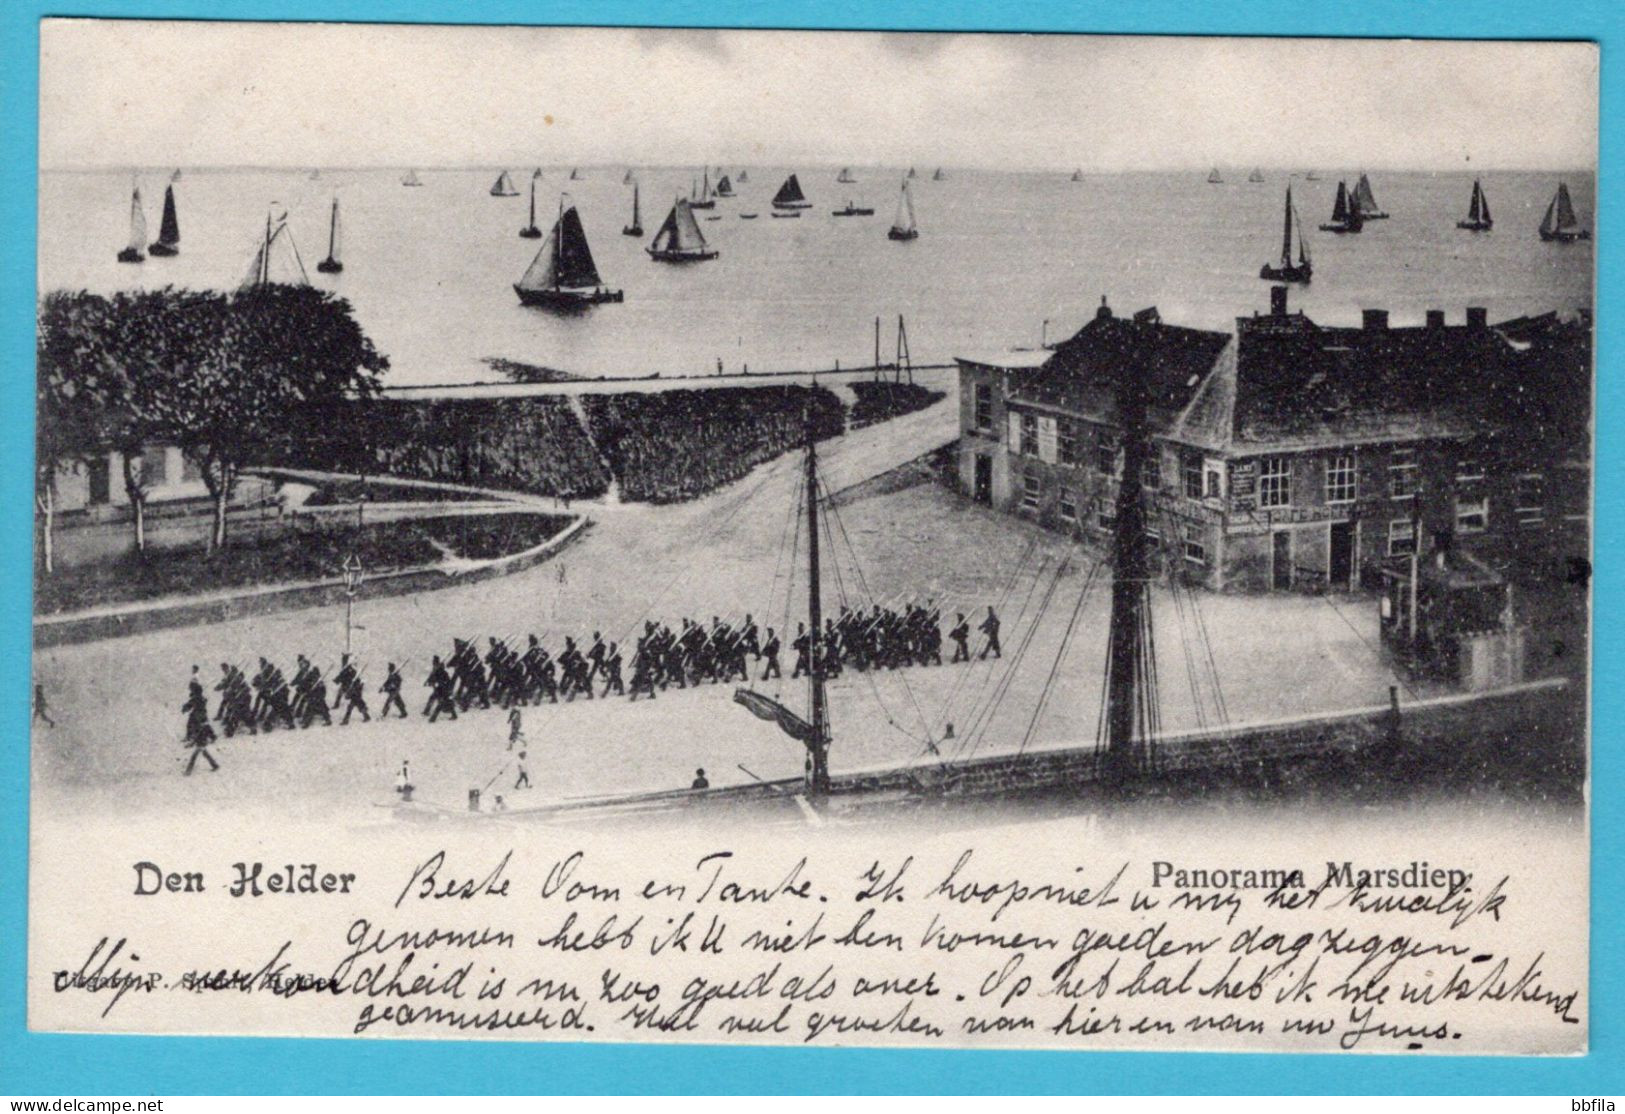 Den Helder
Panorama Marsdiep
Beste Oom en Tante. Ik hoop niet u mij het kwalijk
genomen hebt ik U niet ben komen goeden dag zeggen
Mijn verkoudheid is nu zoo goed als over. Op het bal heb ik me uitstekend
geamuseerd. Heel veel groeten van hier en van uw
P. Helder
delcampe.net
bbfila